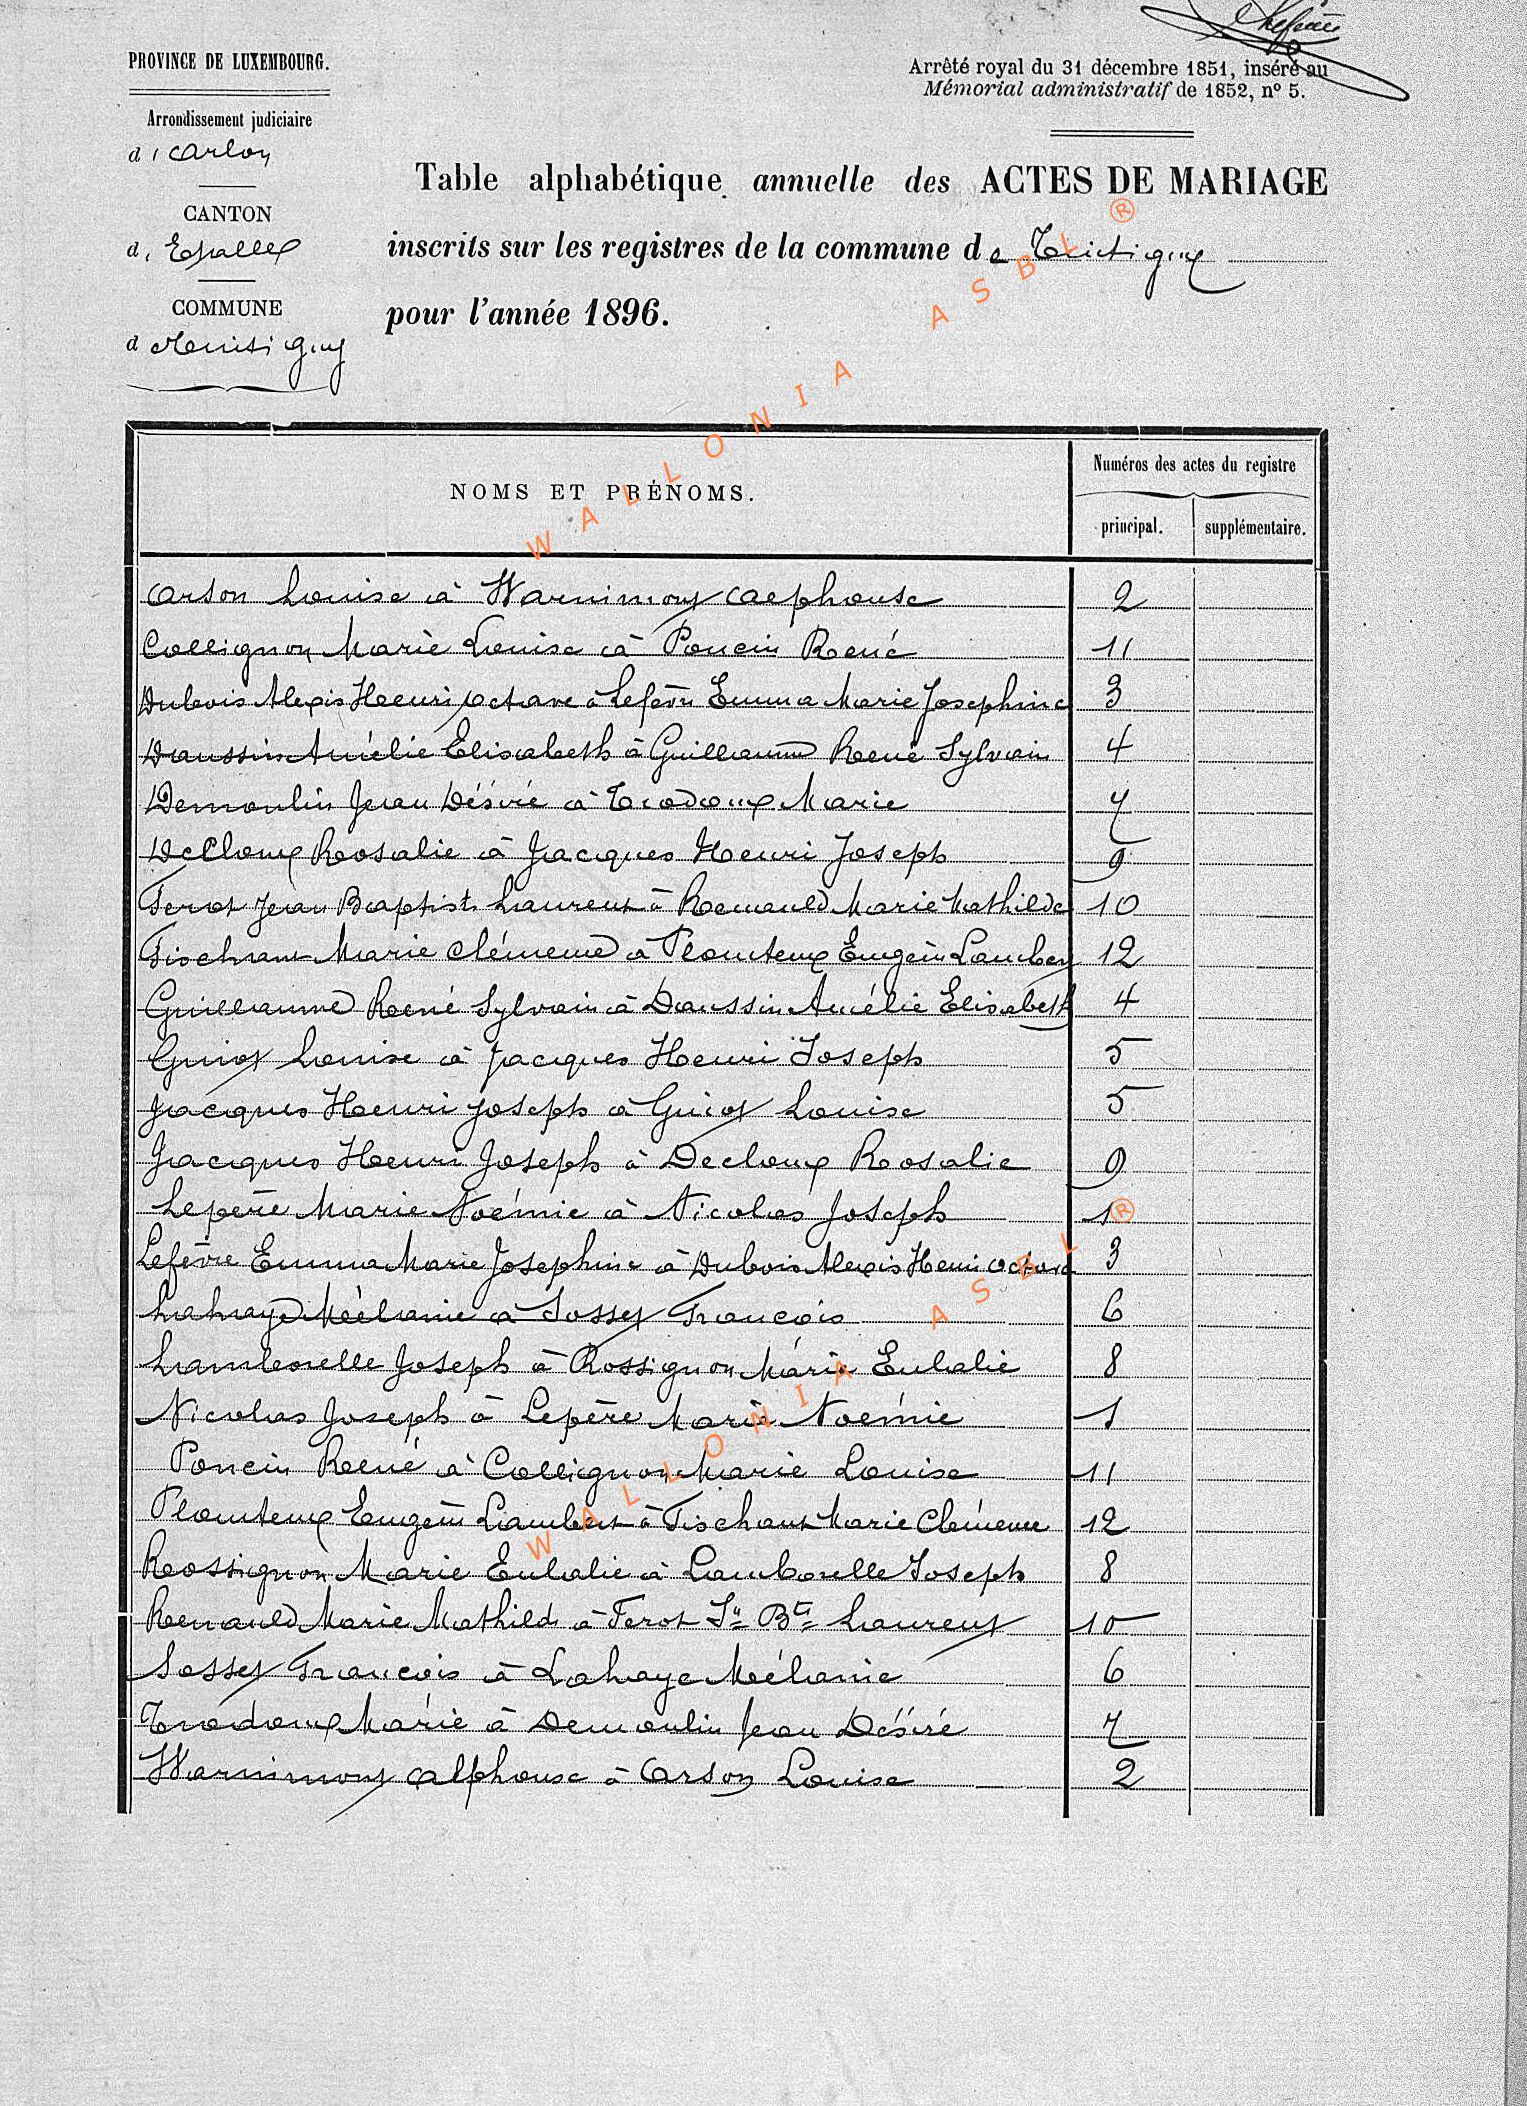 PROVINCE DE LUXEMBOURG.
Arrêté royal du 31 décembre 1851, inséré au
Mémorial administratif de 1852, nº 5.
Arrondissement judiciaire
d'Arlon
CANTON
d'Etalle
COMMUNE
de Tintigny
Table alphabétique annuelle des ACTES DE MARIAGE
inscrits sur les registres de la commune de Tintigny
pour l'année 1896.
NOMS ET PRÉNOMS.
Numéros des actes du registre
principal. supplémentaire.
Arson Louise à Warnimont Alphonse 2
Collignon Marie Louise à Poncin René 11
Dubois Alexis Henri Octave à Lefèvre Emma Marie Josephine 3
Daussin Amélie Elisabeth à Guillaume René Sylvain 4
Demoulin Jean Désiré à Trodoux Marie 7
Decloux Rosalie à Jacques Henri Joseph 9
Ferot Jean Baptiste Laurent à Renauld Marie Mathilde 10
Fischant Marie Clémence à Plomteux Eugène Lambert 12
Guillaume René Sylvain à Daussin Amélie Elisabeth 4
Guiot Louise à Jacques Henri Joseph 5
Jacques Henri Joseph à Guiot Louise 5
Jacques Henri Joseph à Decloux Rosalie 9
Lepère Marie Noémie à Nicolas Joseph 1
Lefèvre Emma Marie Josephine à Dubois Alexis Henri Octave 3
Lahaye Mélanie à Sosset François 6
Lamborelle Joseph à Rossignon Marie Eulalie 8
Nicolas Joseph à Lepère Marie Noémie 1
Poncin René à Collignon Marie Louise 11
Plomteux Eugène Lambert à Fischant Marie Clémence 12
Rossignon Marie Eulalie à Lamborelle Joseph 8
Renauld Marie Mathilde à Ferot Jn Bte Laurent 10
Sosset François à Lahaye Mélanie 6
Trodoux Marie à Demoulin Jean Désiré 7
Warnimont Alphonse à Arson Louise 2
WALLONIA ASBL ®
WALLONIA ASBL ®